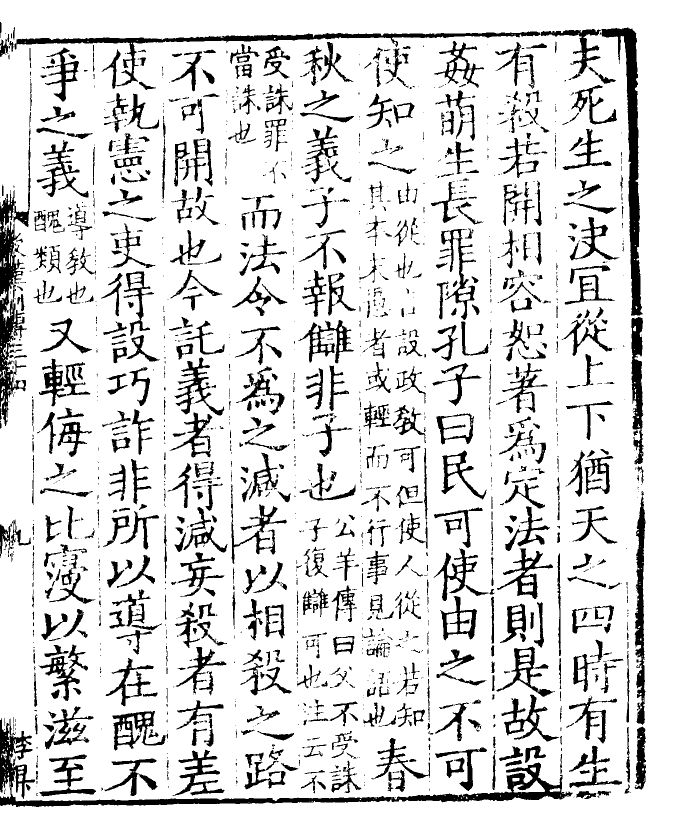 夫死生之决宜從上下猶天之四時有生
有殺若開相容恕著爲定法者則是故設
姦萌生長罪隙孔子曰民可使由之不可
使知之由從也言設政敎可但使人從之若知
其本末愚者或輕而不行事見論語也春
秋之義子不報讎非子也公羊傳曰父不受誅
子復讎可也注云不
受誅罪不
當誅也而法令不爲之减者以相殺之路
不可開故也今託義者得减妄殺者有差
使執憲之吏得設巧詐非所以導在醜不
爭之義導敎也
醜類也又輕侮之比寖以繁滋至
後漢列傳三十四
九